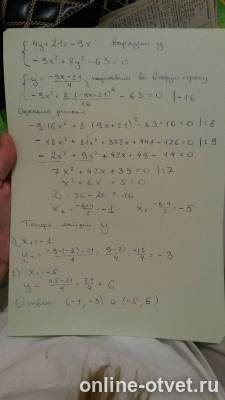 4y+21=-9x выразим y
-9x²+8y²-63=0
y=(-9x-21)/4, подставим во вторую строку
-9x²+8(-9x-21)²/16-63=0 |·16
-9·16x²+8(9x+21)²-63·16=0 |:8
-18x²+81x²+378x+441-126=0 |:9
-2x²+9x²+42x+49-14=0
7x²+42x+35=0 |:7
x²+6x+5=0
D=36-20=16
x₁=(-6+4)/2=-1 x₂=(-6-4)/2=-5
Теперь найдём y
1) x₁=-1
y₁=(-9·(-1)-21)/4=(9-21)/4=-12/4=-3
2) x₂=-5
y=(45-21)/4=24/4=6
Ответ: (-1,-3) и (-5,6)
online-otvet.ru